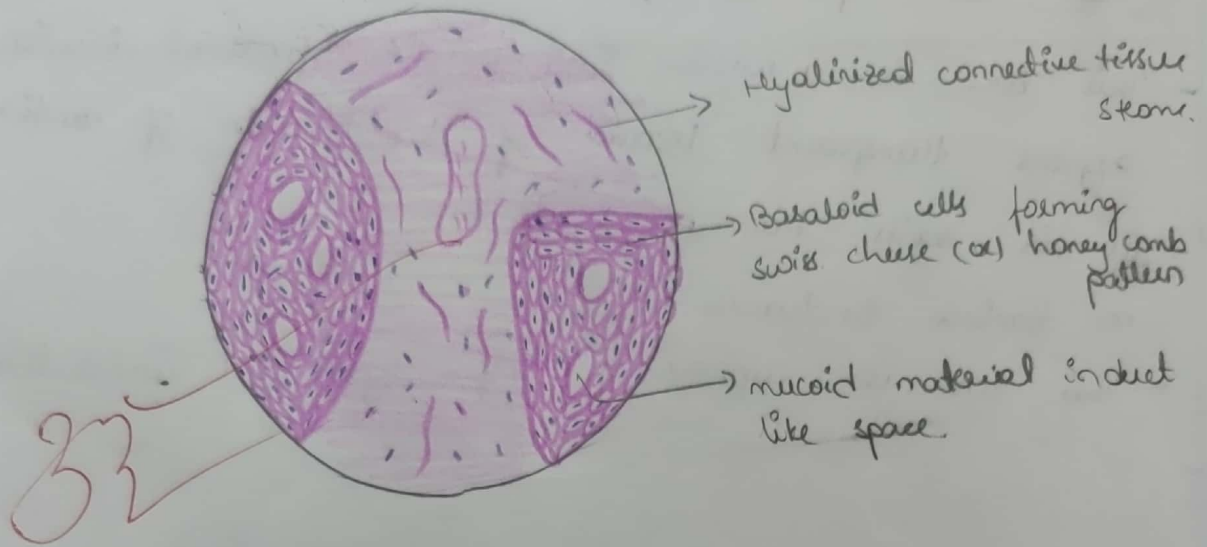 Hyalinized connective tissue
stroma.
Basaloid cells forming
swiss cheese (or) honey comb
pattern
mucoid material in duct
like space.